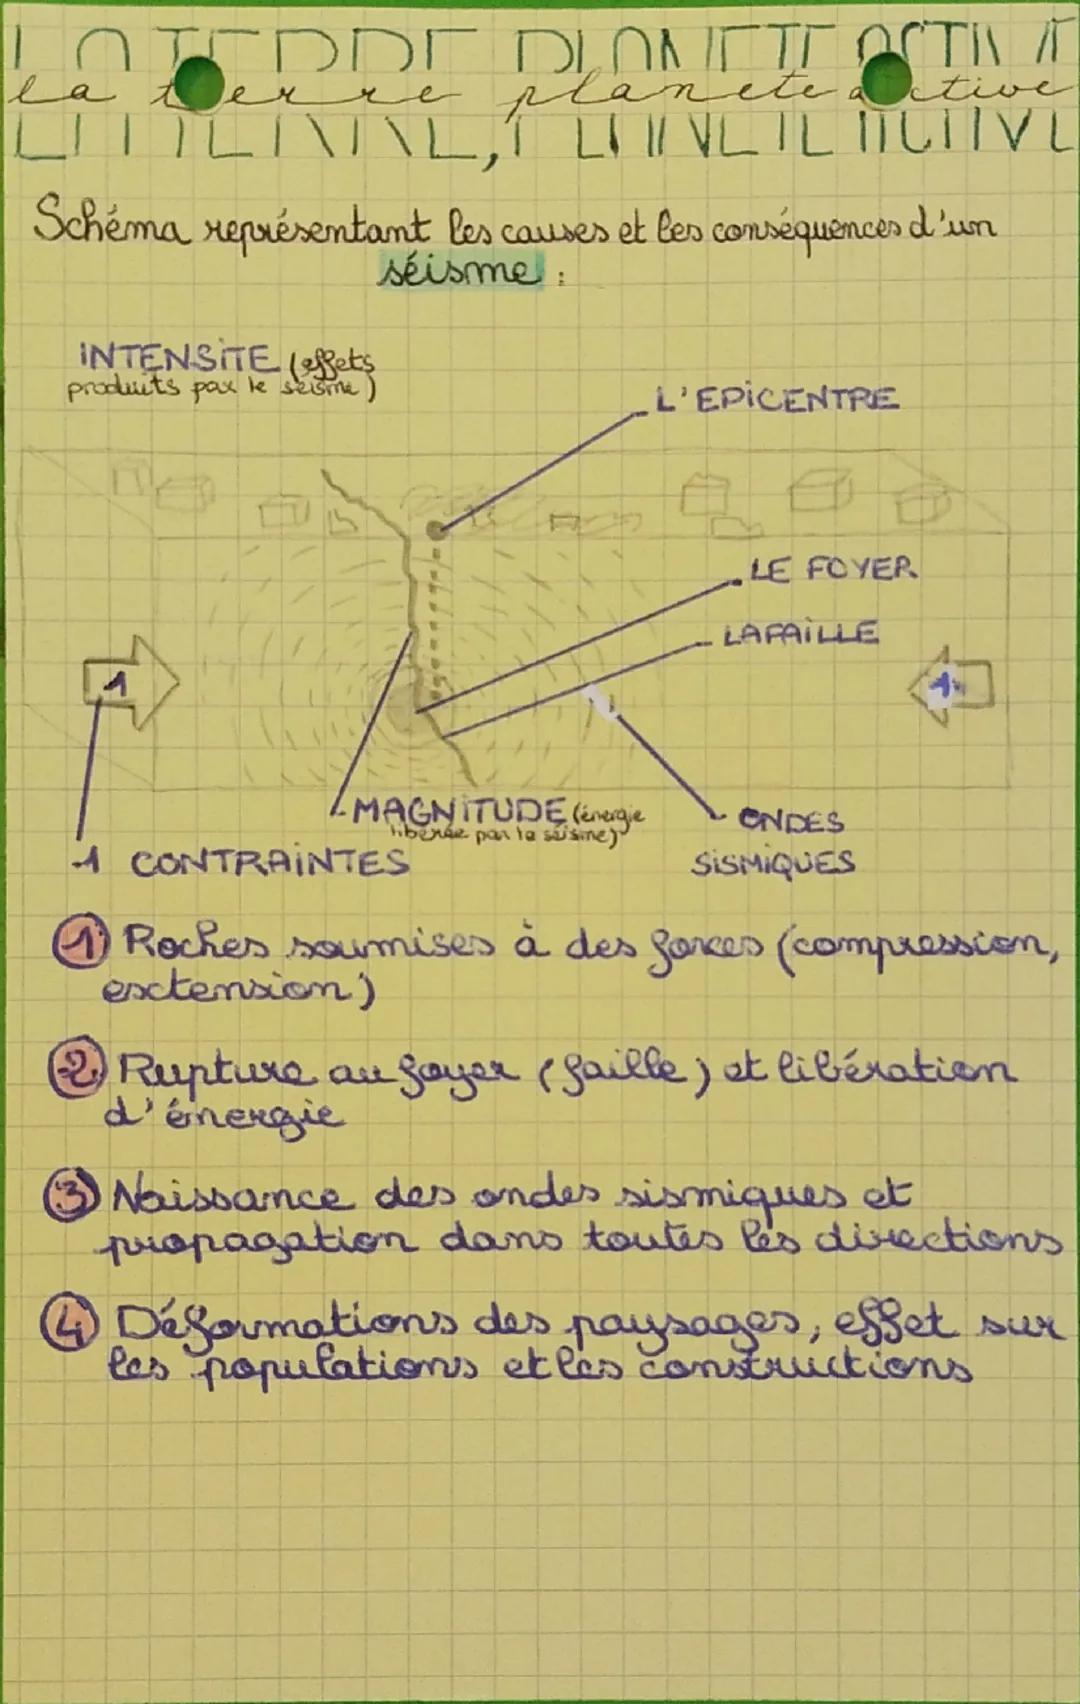 LA TERRE, PLANETE ACTIVE
la terre planete active
Schéma représentant les causes et les conséquences d'un
séisme :
INTENSITE (effets
produits par le séisme)
L'EPICENTRE
LE FOYER
LA FAILLE
1
1
MAGNITUDE (énergie
libérée par le séisme)
ONDES
SISMIQUES
1 CONTRAINTES
1 Roches soumises à des forces (compression,
exctension)
2 Rupture au foyer (faille) et libération
d'énergie
3 Naissance des ondes sismiques et
propagation dans toutes les directions
4 Déformations des paysages, effet sur
les populations et les constructions